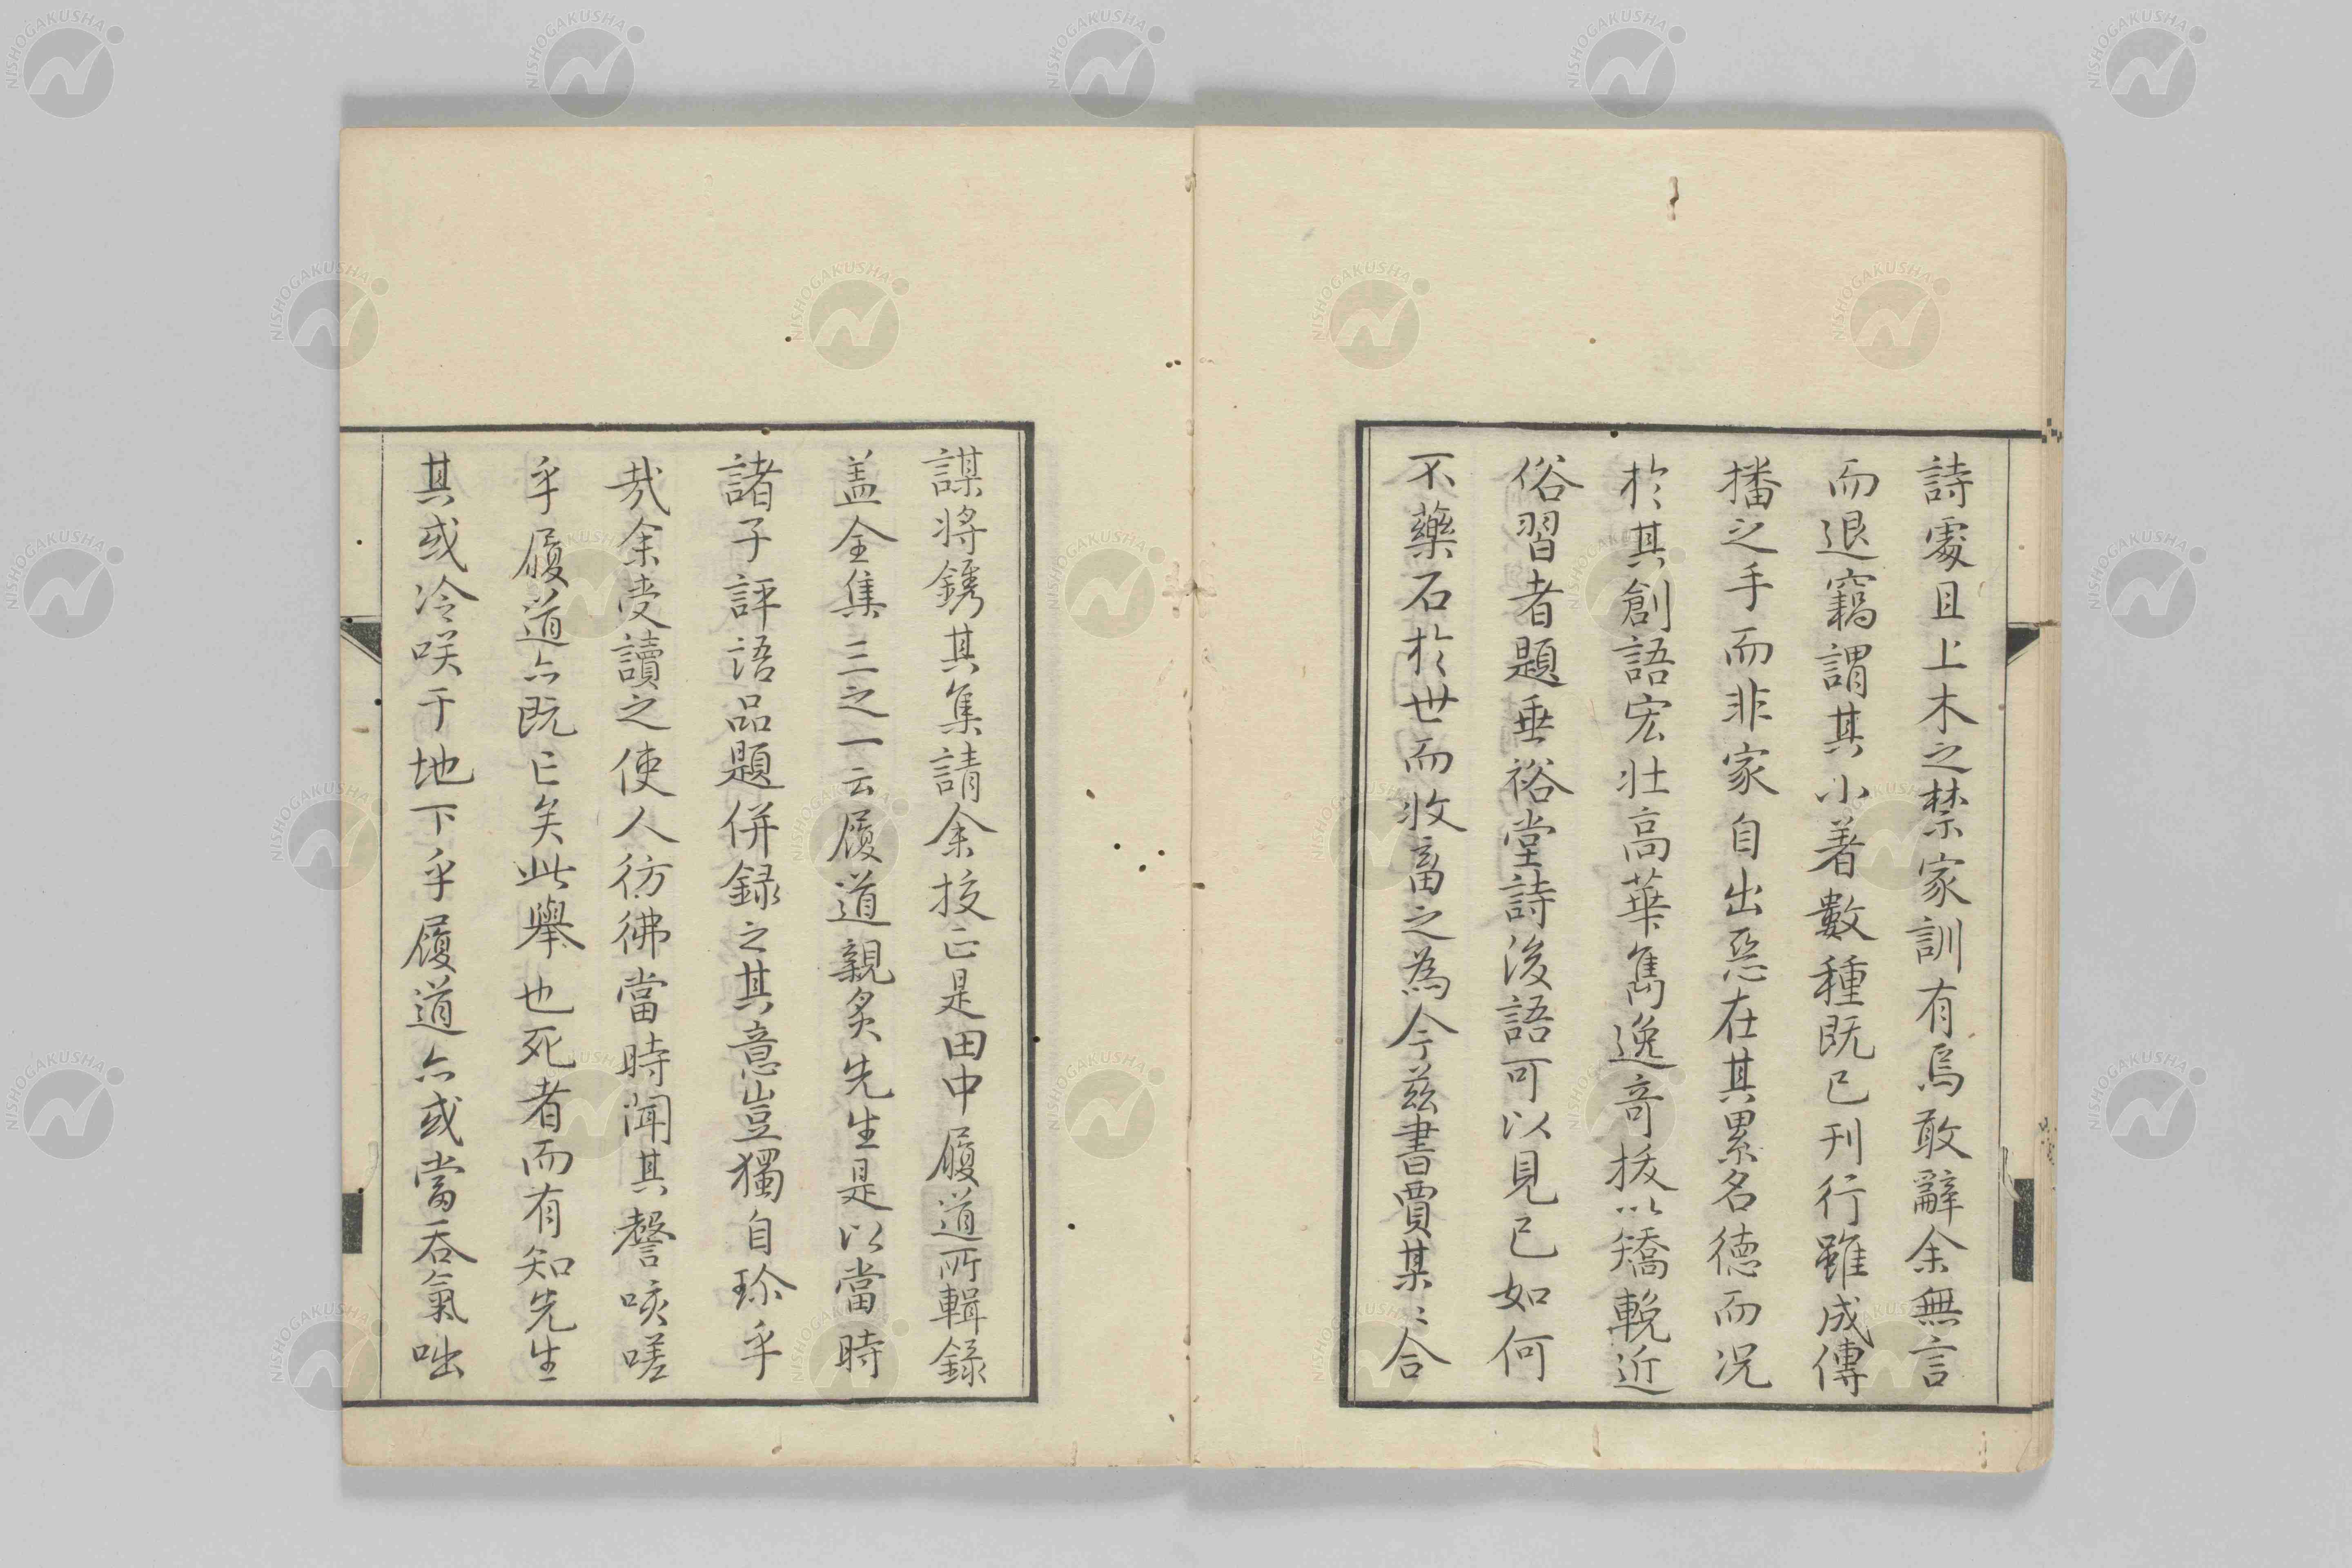 詩處且上木之禁家訓有焉敢辭余無言
而退竊謂其小著數種既已刊行雖成傳
播之手而非家自出惡在其累名德而况
於其創語宏壯高華雋逸奇拔以矯輓近
俗習者題垂裕堂詩後語可以見已如何
不藥石於世而收畜之為今茲書賈某〻合
謀將鎸其集請余挍正是田中履道所輯錄
盖全集三之一云履道親炙先生是以當時
諸子評語品題併録之其意豈獨自珎乎
哉余受讀之使人彷彿當時聞其謦咳嗟
乎履道亦既亡矣此舉也死者而有知先生
其或冷咲于地下乎履道亦或當吞氣咄
NISHOGAKUSHA